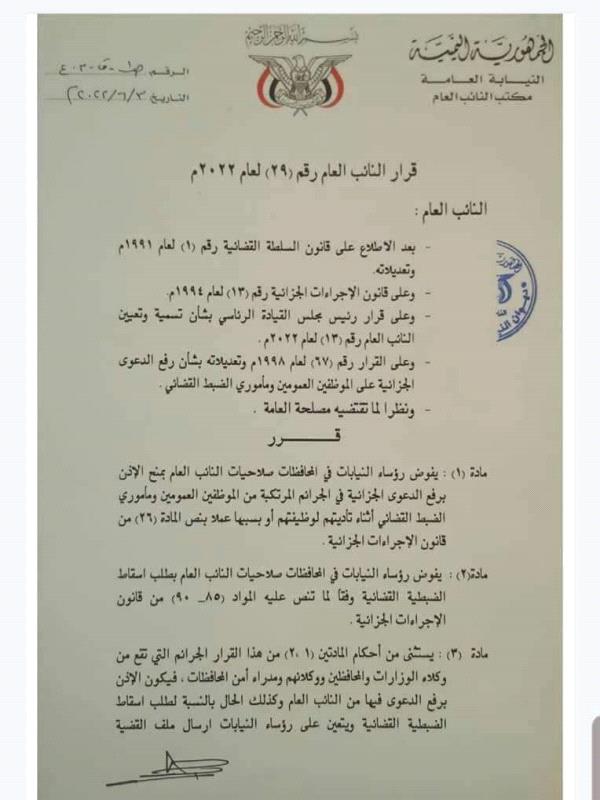 بسم الله الرحمن الرحيم
الجمهورية اليمنية
النيابة العامة
مكتب النائب العام
الرقم:
التاريخ: ٢٠٢٢/٦/٣
قرار النائب العام رقم (٢٩) لعام ٢٠٢٢م
النائب العام :
- بعد الاطلاع على قانون السلطة القضائية رقم (١) لعام ١٩٩١م
وتعديلاته.
- وعلى قانون الإجراءات الجزائية رقم (١٣) لعام ١٩٩٤م.
- وعلى قرار رئيس مجلس القيادة الرئاسي بشأن تسمية وتعيين
النائب العام رقم (١٣) لعام ٢٠٢٢م .
- وعلى القرار رقم (٦٧) لعام ١٩٩٨م وتعديلاته بشأن رفع الدعوى
الجزائية على الموظفين العمومين ومأموري الضبط القضائي .
- ونظرا لما تقتضيه مصلحة العامة .
قـــــرر
مادة (١) : يفوض رؤساء النيابات في المحافظات صلاحيات النائب العام بمنح الإذن
برفع الدعوى الجزائية في الجرائم المرتكبة من الموظفين العمومين ومأموري
الضبط القضائي أثناء تأديتهم لوظيفتهم أو بسببها عملا بنص المادة (٢٦) من
قانون الإجراءات الجزائية .
مادة(٢) : يفوض رؤساء النيابات في المحافظات صلاحيات النائب العام بطلب اسقاط
الضبطية القضائية وفقاً لما تنص عليه المواد (٨٥_ ٩٠) من قانون
الإجراءات الجزائية .
مادة (٣) : يستثنى من أحكام المادتين (١ ،٢) من هذا القرار الجرائم التي تقع من
وكلاء الوزارات والمحافظين ووكلائهم ومدراء أمن المحافظات ، فيكون الإذن
برفع الدعوى فيها من النائب العام وكذلك الحال بالنسبة لطلب اسقاط
الضبطية القضائية ويتعين على رؤساء النيابات ارسال ملف القضية